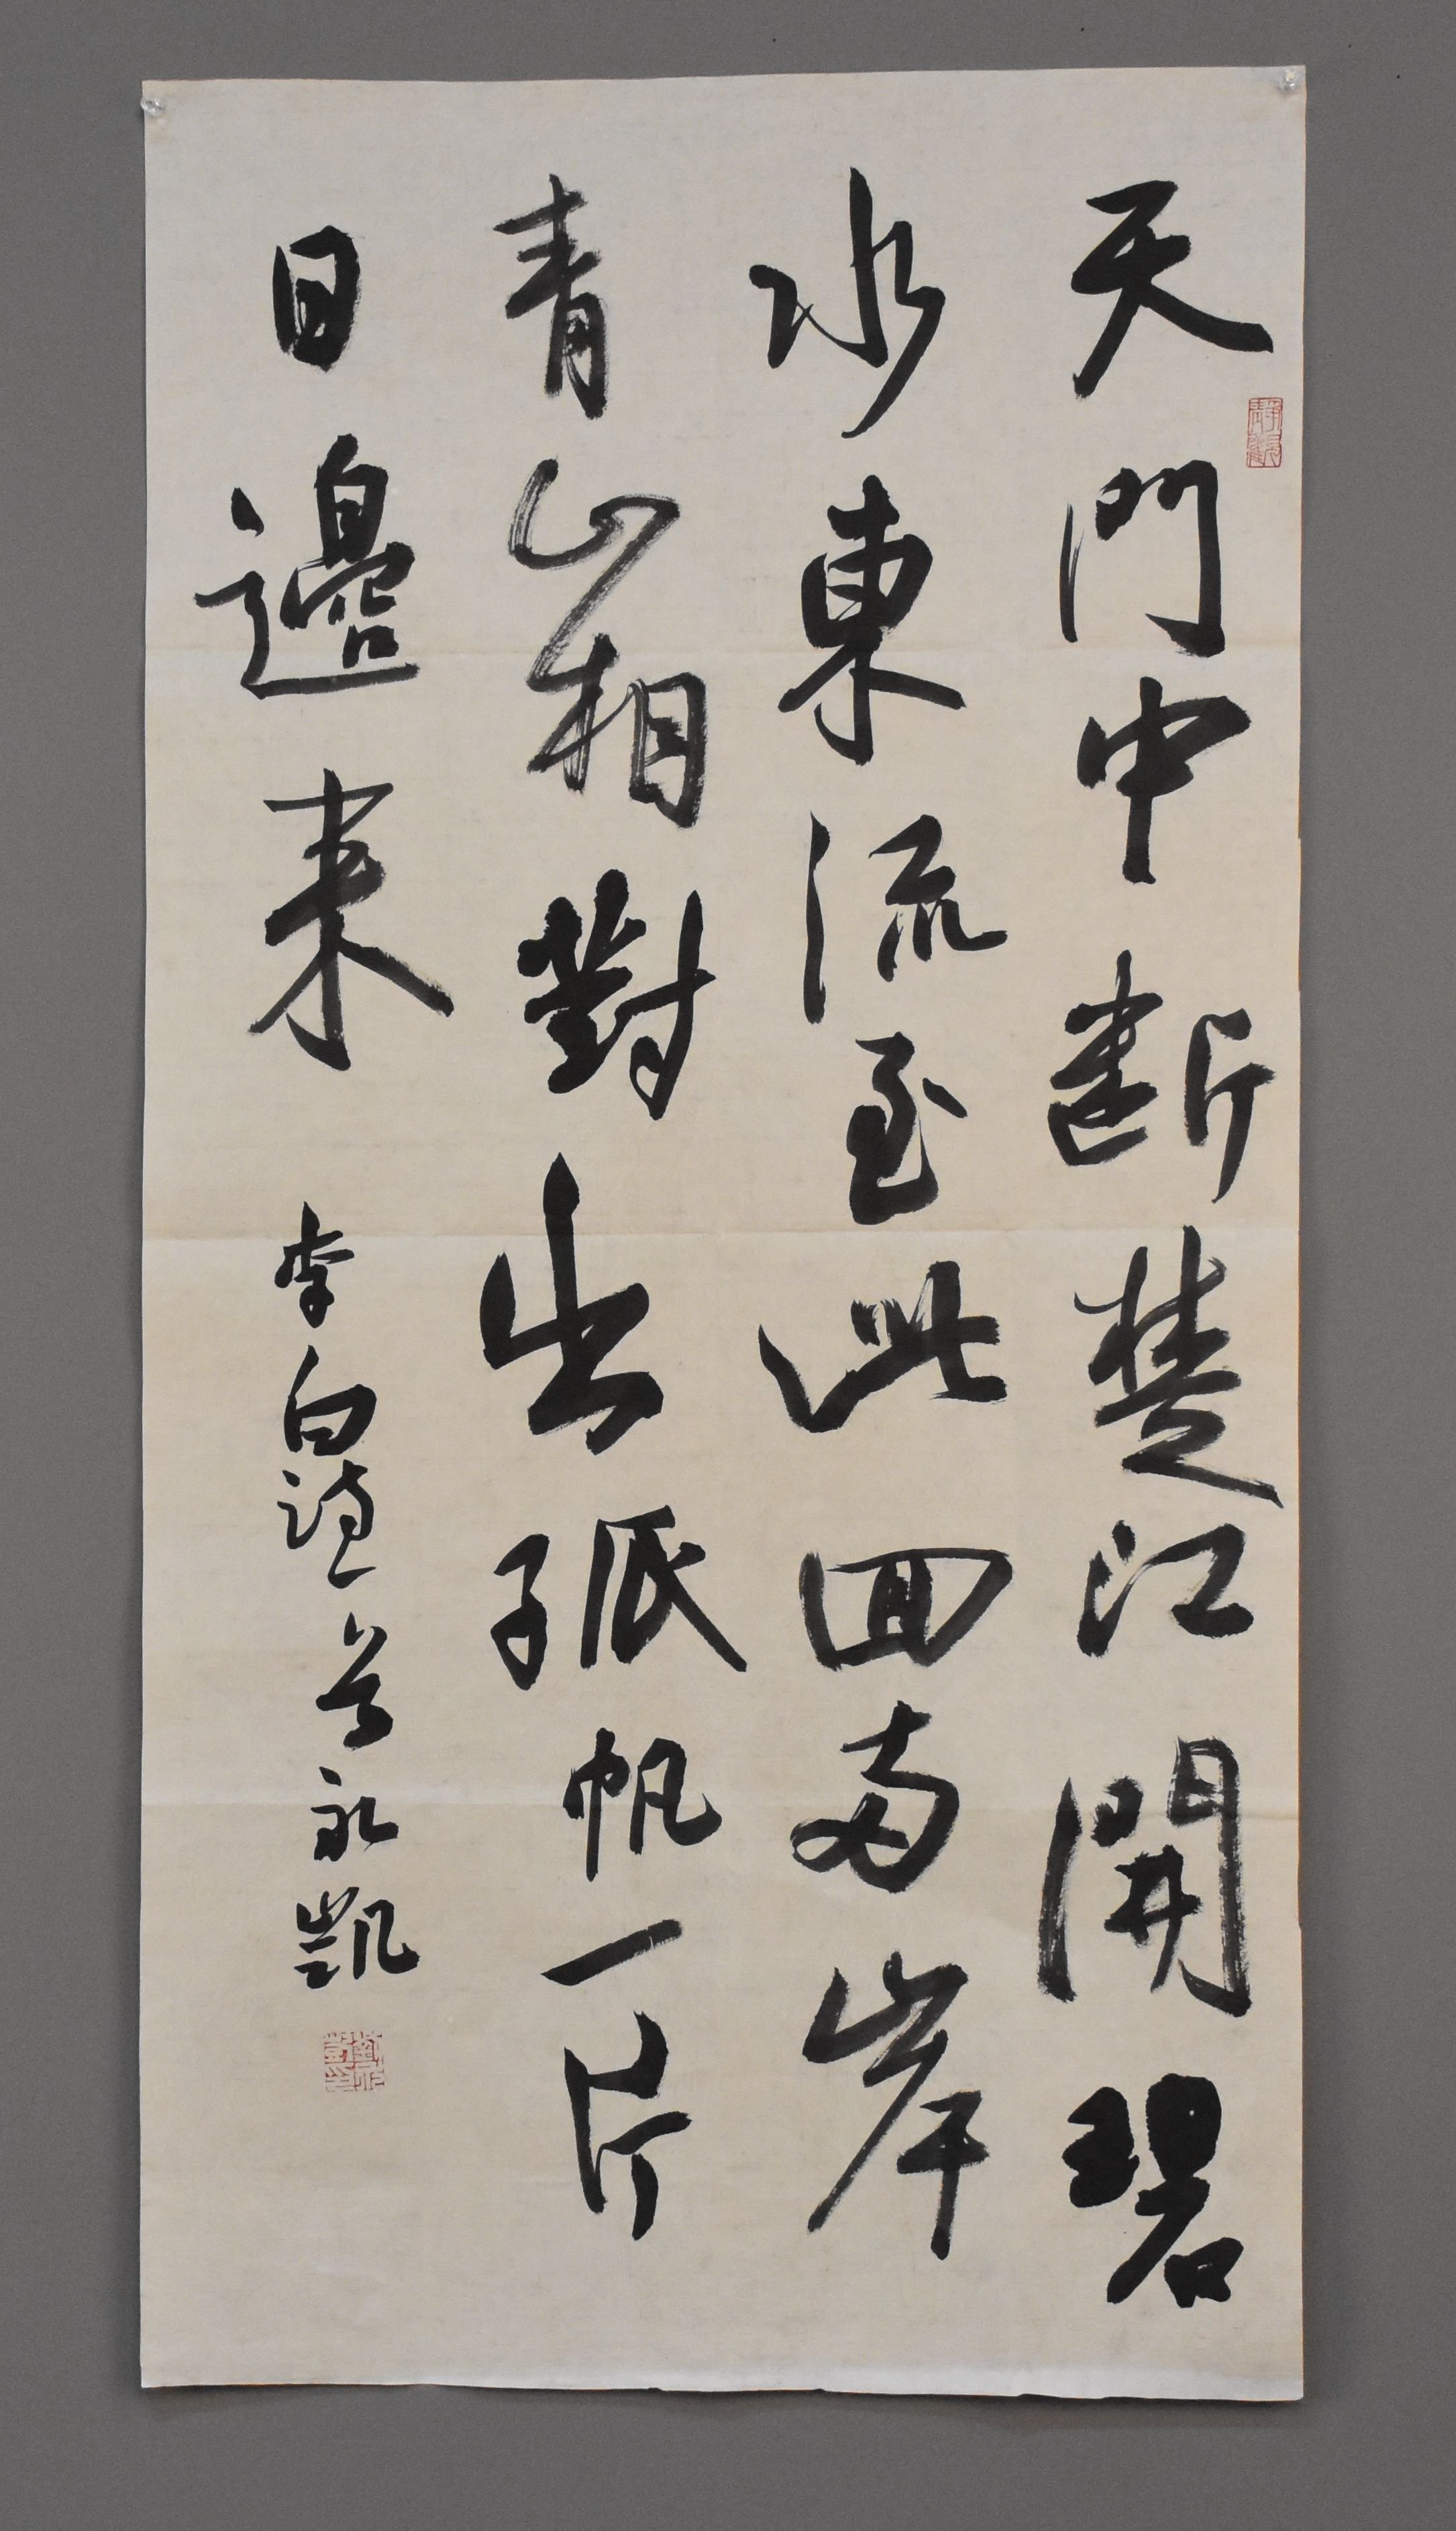 天門中斷楚江開碧
水東流至此回兩岸
青山相對出孤帆一片
日邊來
李白詩 永凱